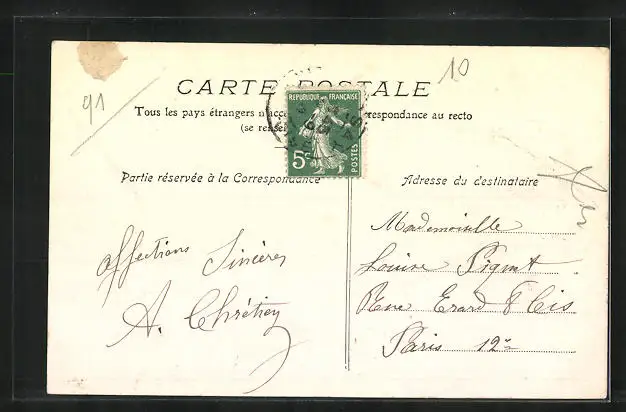 91
10
CARTE POSTALE
Tous les pays étrangers n'acce respondance au recto
(se rensei
REPUBLIQUE FRANÇAISE
5c POSTES
Partie réservée à la Correspondance
Adresse du destinataire
affections Sincères
A. Chrétien
Mademoiselle
Louise
Rue Erard 8 bis
Paris 12e